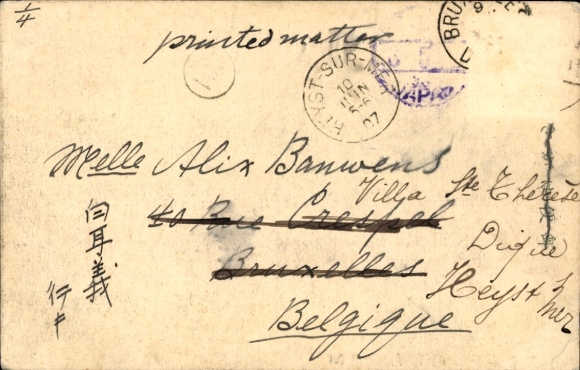 1/4
printed matter
BRUXELLES
HEYST-SUR-MER
10
JUIN
07
Melle Alix Bauwens
Villa Ste Thérèse
40 Rue Crespel
Digue
Bruxelles
Heyst s/mer
Belgique
白耳義
行